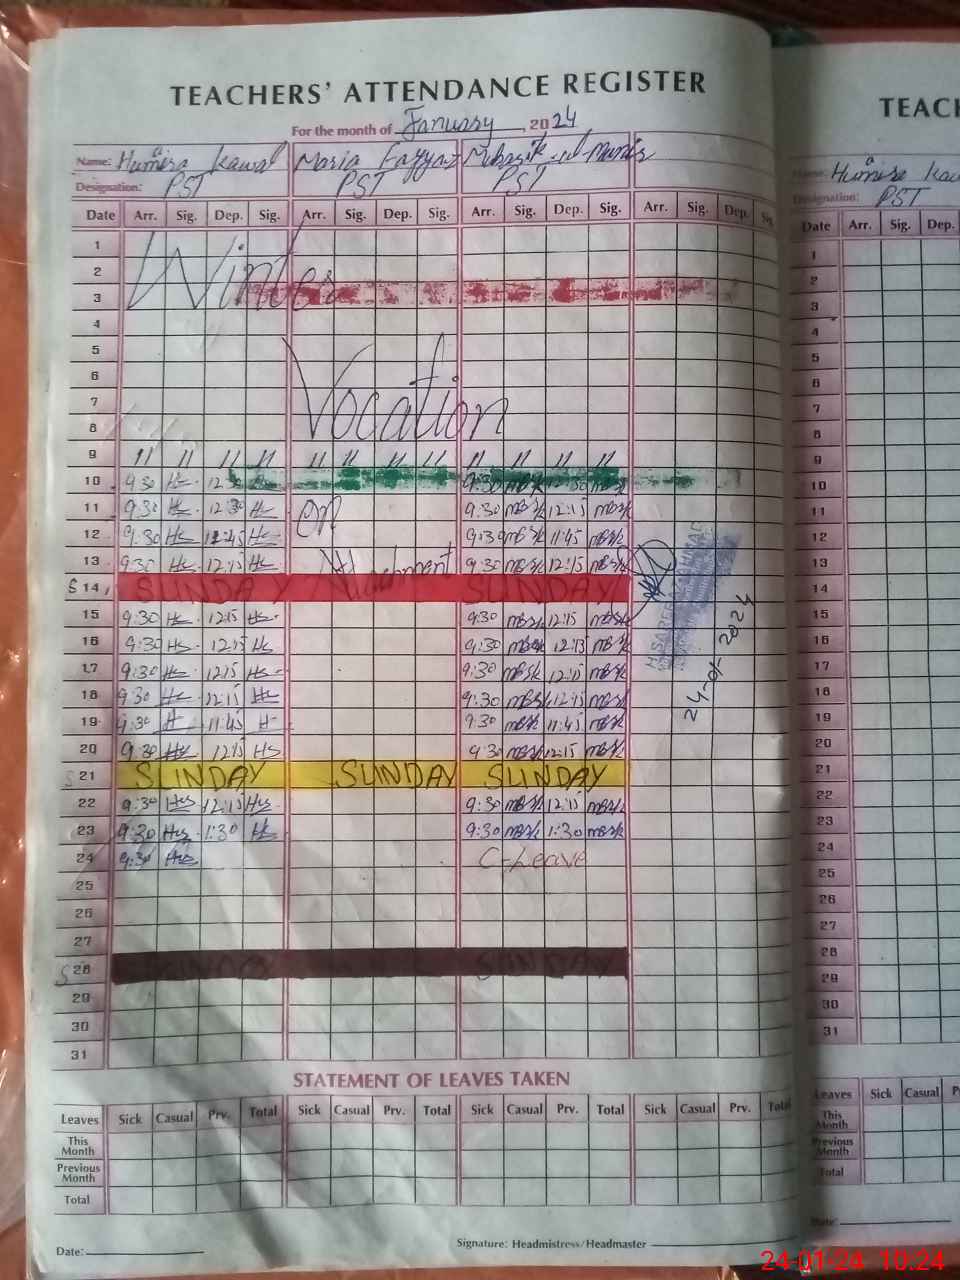 TEACHERS' ATTENDANCE REGISTER
TEACH
For the month of January, 2024
Name: Humera Kawal Maria Fayyaz
Designation: PST PST PST
Humera Kau
Designation: PST
Date Arr. Sig. Dep. Sig. Arr. Sig. Dep. Sig. Arr. Sig. Dep. Sig. Arr. Sig. Dep. Sig
Date Arr. Sig. Dep.
1 Winter
2
3
4
5
6
7 Vocation
8
9 11 11 11 11 11 11 11 11 11 11 11 11
10 9:30 Hs 12:30 Hs 9:30 mBsk 12:30 mBsk
11 9:30 Hs 12:30 Hs on 9:30 mBsk 12:15 mBsk
12 9:30 Hs 11:45 Hs 9:30 mBsk 11:45 mBsk
13 9:30 Hs 12:15 Hs Attachment 9:30 mBsk 12:15 mBsk
S 14 SUNDAY SUNDAY
15 9:30 Hs 12:15 Hs 9:30 mBsk 12:15 mBsk
16 9:30 Hs 12:15 Hs 9:30 mBsk 12:15 mBsk
17 9:30 Hs 12:15 Hs 9:30 mBsk 12:15 mBsk
18 9:30 Hs 12:15 Hs 9:30 mBsk 12:15 mBsk
19 9:30 H 11:45 H 9:30 mBsk 11:45 mBsk
20 9:30 Hs 12:15 Hs 9:30 mBsk 12:15 mBsk
S 21 SUNDAY SUNDAY SUNDAY
22 9:30 Hs 12:15 Hs 9:30 mBsk 12:15 mBsk
23 9:30 Hs 1:30 Hs 9:30 mBsk 1:30 mBsk
24 9:30 Hs C-Leave
25
26
27
S 28 SUNDAY SUNDAY
29
30
31
24-01-2024
1
2
3
4
5
6
7
8
9
10
11
12
13
14
15
16
17
18
19
20
21
22
23
24
25
26
27
28
29
30
31
STATEMENT OF LEAVES TAKEN
Leaves Sick Casual Prv. Total Sick Casual Prv. Total Sick Casual Prv. Total Sick Casual Prv. Total
This Month
Previous Month
Total
Leaves Sick Casual P
This Month
Previous Month
Total
Date:
Signature: Headmistress/Headmaster
Date:
24-01-24 10:24